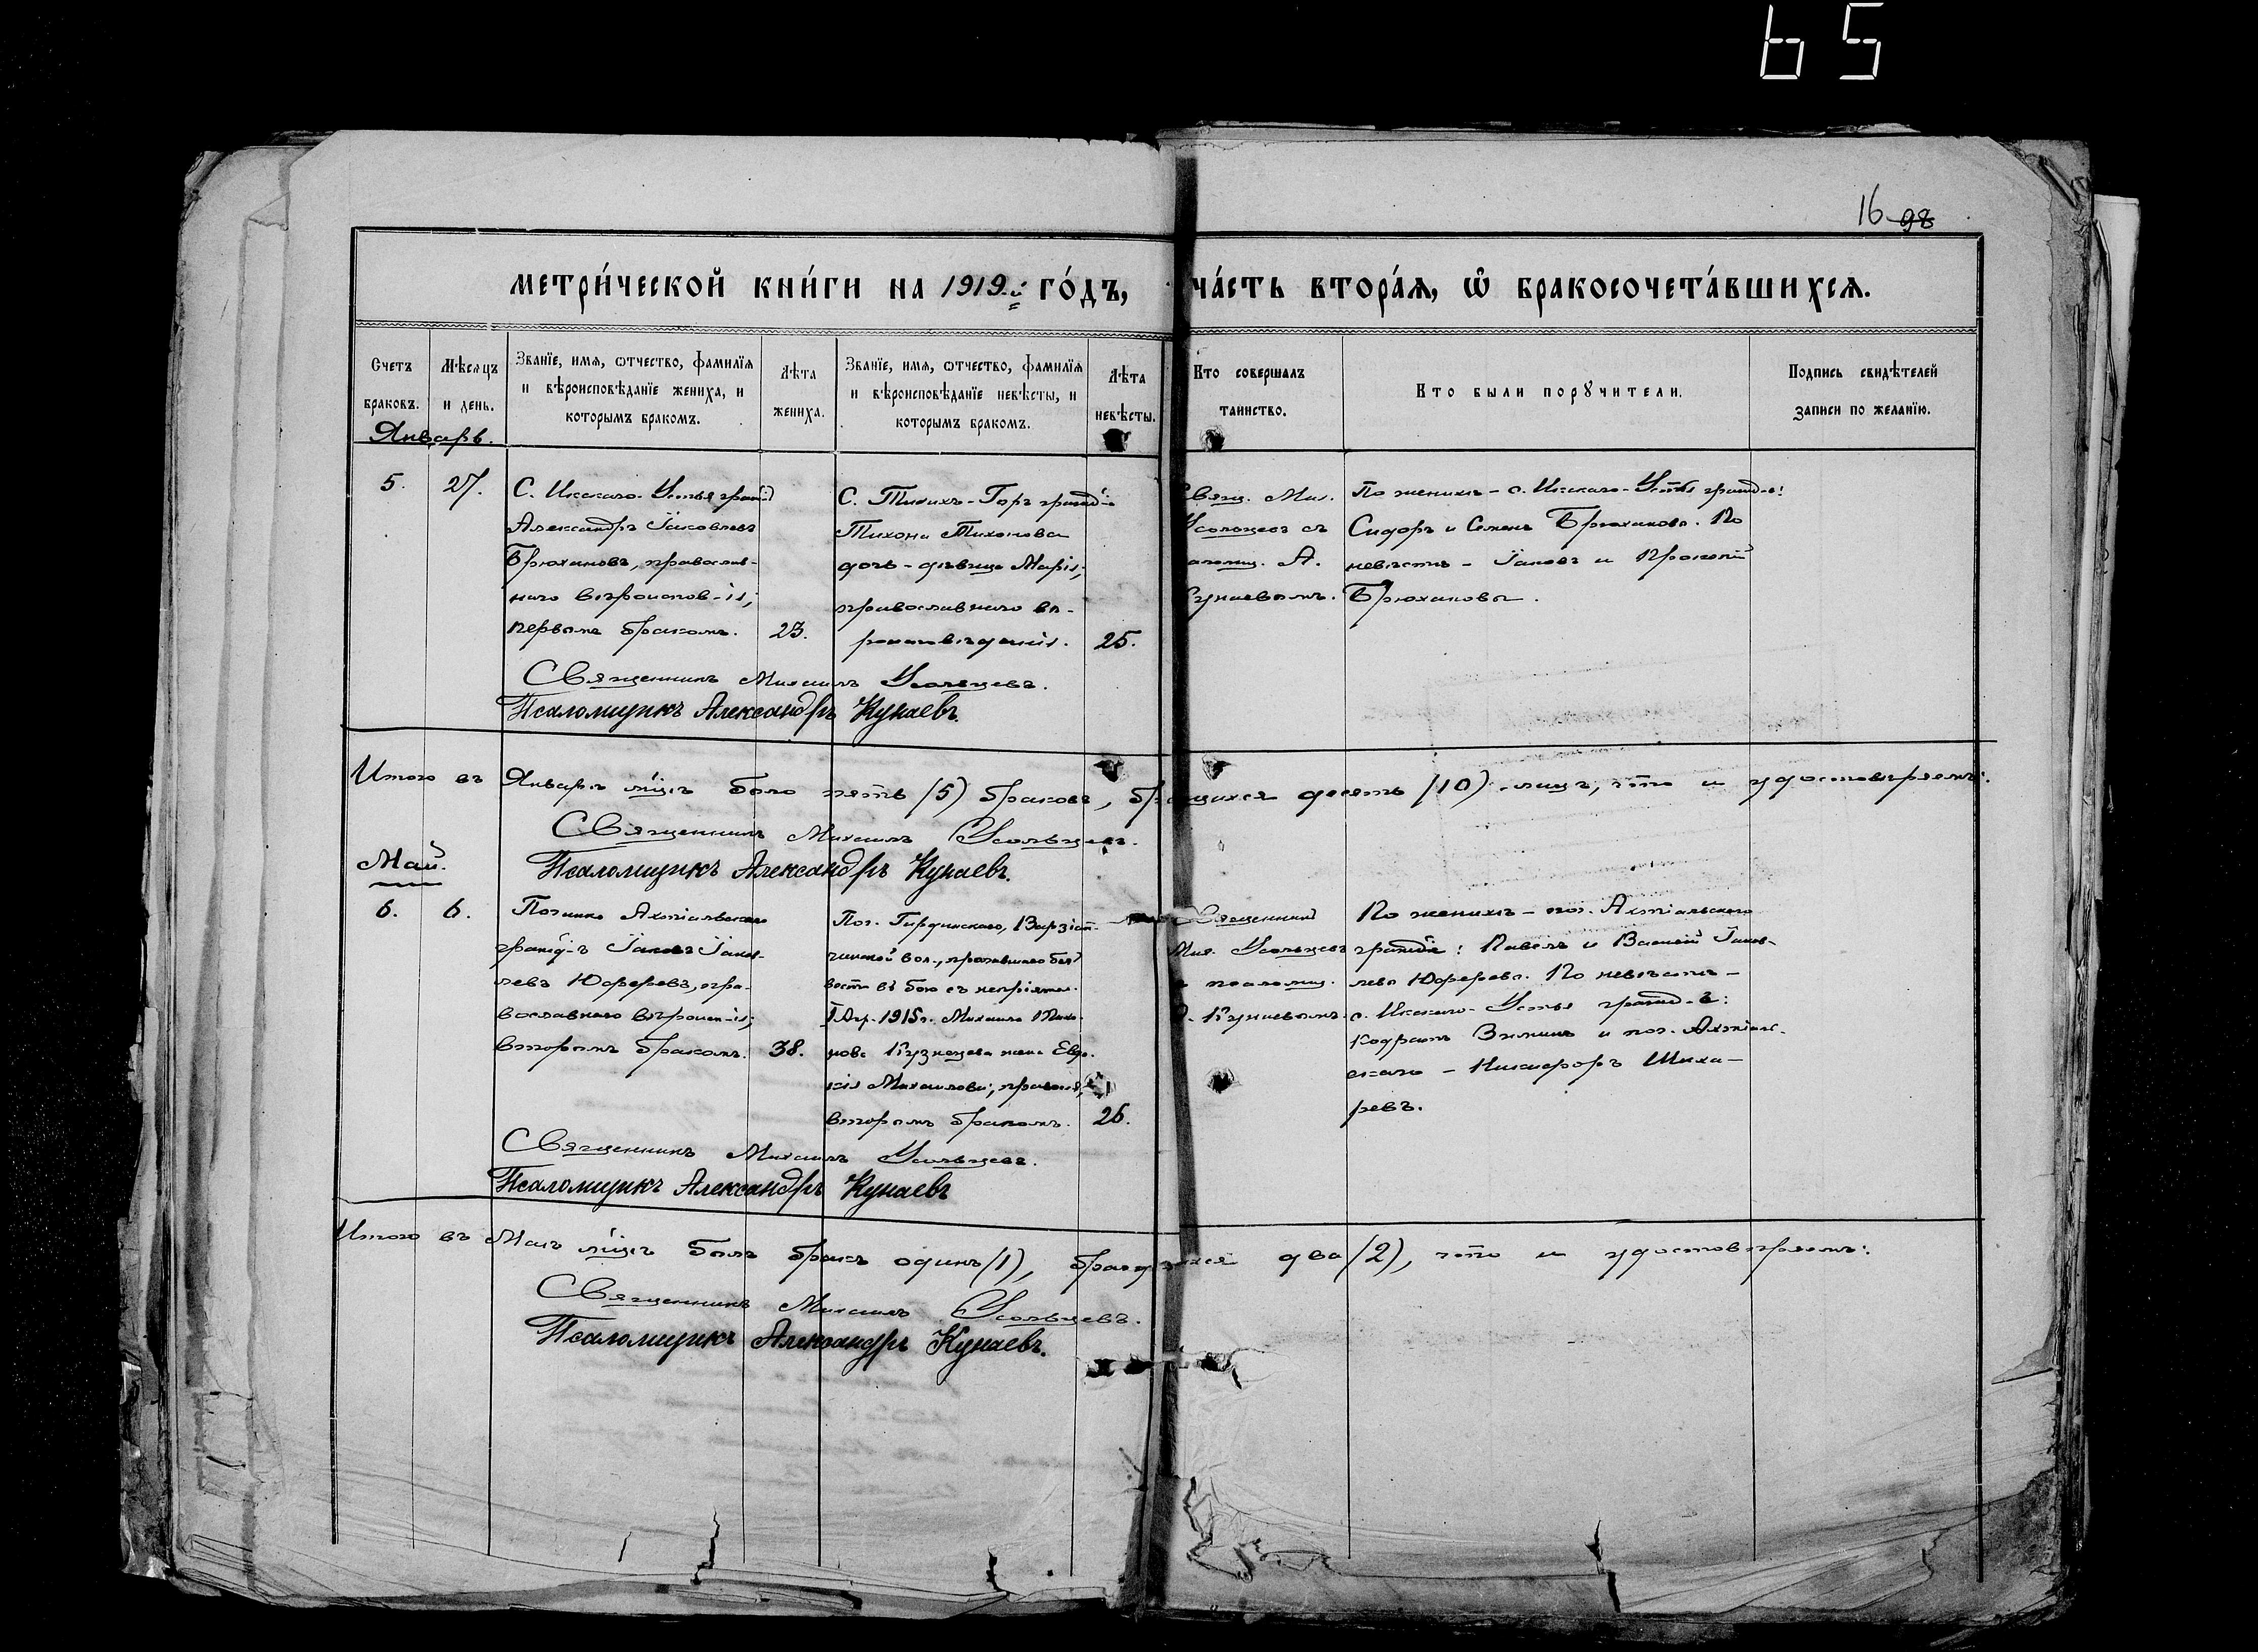 65
16 98
метри́ческой кни́ги на 1919й го́дъ, ча́сть втора́я, ѡ҆ бракосочета́вшихся.
Счетъ браковъ.
Мѣсяцъ и день.
Званїе, имя, ѡтчество, фамилїя
и вѣроисповѣданїе жениха, и
которымъ бракомъ.
Лѣта жениха.
Званїе, имя, ѡтчество, фамилїя
и вѣроисповѣданїе невѣсты, и
которымъ бракомъ.
Лѣта невѣсты.
Кто совершалъ
таинство.
Кто были порꙋчители.
Подпись свидѣтелей
записи по желанїю.
Январь.
5. 27.
С. Икскаго-Устья
Александръ Іаковлевъ
Брюхановъ, православ-
наго вѣроиспов-ія;
первымъ бракомъ. 23.
С. Тихихъ-Горъ
Тихона Тихонова
дочь-дѣвица Марія,
православнаго вѣ-
роисповѣданія. 25.
Свящ. Мих.
Усольцевъ съ
псаломщ. А.
Кунаевымъ.
По женихѣ - с. Икскаго-Устья
Сидоръ и Семенъ Брюхановы. По
невѣстѣ - Іаковъ и Прокопій
Брюхановы.
Священникъ Михаилъ Усольцевъ.
Псаломщикъ Александръ Кунаевъ.
Итого въ Январѣ м-цѣ было пять (5) браковъ, брачущихся десять (10) лицъ, что и удостовѣряемъ:
Священникъ Михаилъ Усольцевъ.
Псаломщикъ Александръ Кунаевъ.
Май.
6. 6.
Починка Ахтіальскаго
Іаковъ Іаков-
левъ Юферевъ, пра-
вославнаго вѣроисп-ія;
вторымъ бракомъ. 38.
Поч. Гирдинскаго, Варзіат-
чинской вол.,
вести въ бою съ непріятел.
1915 г. Михаила
Кузнецова жена Евдо-
кія Михаилова;
вторымъ бракомъ. 26.
Священникъ
Мих. Усольцевъ
псаломщ.
А. Кунаевымъ.
По женихѣ - поч. Ахтіальскаго
Павелъ и Василій Іаков-
левы Юферевы. По невѣстѣ -
с. Икскаго-Устья
Кодратъ Зиминъ и поч. Ахтіаль-
скаго - Никифоръ Шиха-
ревъ.
Священникъ Михаилъ Усольцевъ.
Псаломщикъ Александръ Кунаевъ
Итого въ Маѣ м-цѣ былъ бракъ одинъ (1), брачущихся два (2), что и удостовѣряемъ:
Священникъ Михаилъ Усольцевъ.
Псаломщикъ Александръ Кунаевъ.